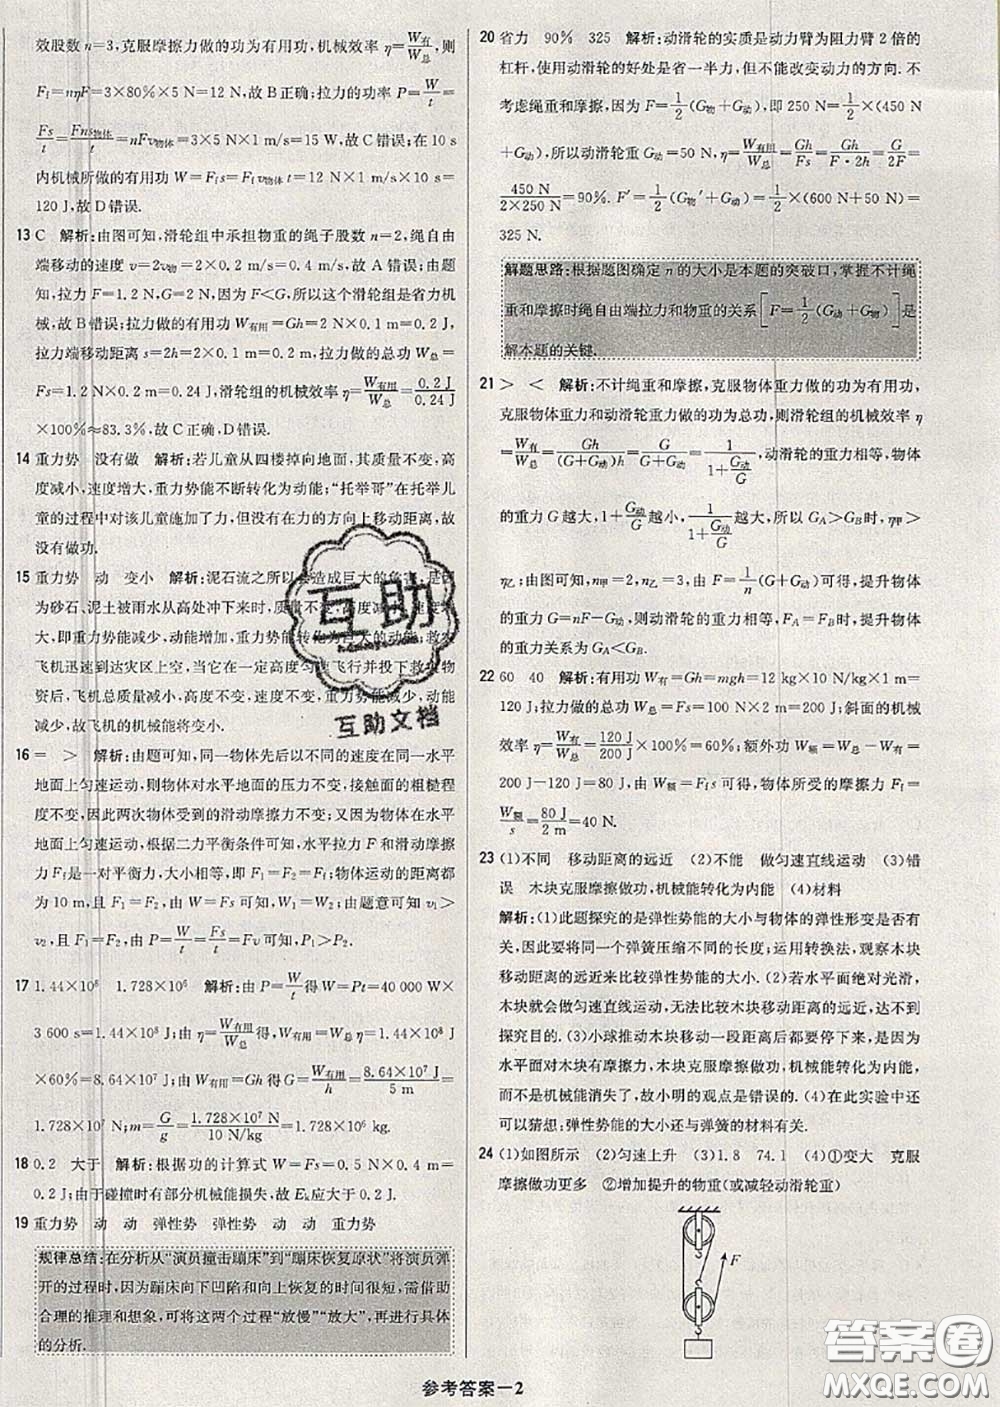 效股数 n=3,克服摩擦力做的功为有用功,机械效率 η=W有/W总,则
Ff=nηF=3×80%×5 N=12 N,故 B 正确;拉力的功率 P=W/t
=Fs/t=Fns物体/t=nFv物体=3×5 N×1 m/s=15 W,故 C 错误;在 10 s
内机械所做的有用功 W=Ffs=Ffv物体t=12 N×1 m/s×10 s=
120 J,故 D 错误.
13 C 解析:由图可知,滑轮组中承担物重的绳子股数 n=2,绳自由
端移动的速度 v=2v物=2×0.1 m/s=0.2 m/s,故 A 错误;由图
知,拉力 F=1.2 N,因为 F<G,所以这个滑轮组是省力机
械,故 B 错误;拉力做的有用功 W有用=Gh=2 N×0.1 m=0.2 J,
拉力端移动距离 s=2h=2×0.1 m=0.2 m,拉力做的总功 W总=
Fs=1.2 N×0.2 m=0.24 J,滑轮组的机械效率 η=W有用/W总=0.2 J/0.24 J
×100%≈83.3%,故 C 正确,D 错误.
14 重力势 没有做 解析:若儿童从四楼掉向地面,其质量不变,高
度减小,速度增大,重力势能不断转化为动能;“托举哥”在托举儿
童的过程中对该儿童施加了力,但没有在力的方向上移动距离,故
没有做功.
15 重力势 动 变小 解析:泥石流之所以会造成巨大的危害,是因
为砂石、泥土被雨水从高处冲下来时,质量不变,高度减小,速度增
大,即重力势能减少,动能增加,重力势能转化为巨大的动能;救灾
飞机到达灾区上空,当它在一定高度匀速飞行并投下救灾物
资后,飞机总质量减小,高度不变,速度不变,重力势能减少,动能
减少,故飞机的机械能将变小.
16 = > 解析:由题可知,同一物体先后以不同的速度在同一水平
地面上匀速运动,则物体对水平地面的压力不变,接触面的粗糙程
度不变,因此两次物体受到的滑动摩擦力不变;又因为物体在水平
地面上匀速运动,根据二力平衡条件可知,水平拉力 F 和滑动摩擦
力 Ff 是一对平衡力,大小相等,即 F1=F2;物体运动的距离都
为 10 m,且 F1=F2,由 W=Fs 可知,W1=W2;由题意可知 v1>
v2,且 F1=F2,由 P=W/t=Fs/t=Fv 可知,P1>P2.
17 1.44×10⁸ 1.728×10⁶ 解析:由 P=W/t 得 W=Pt=40 000 W×
3 600 s=1.44×10⁸ J;由 η=W有用/W总 得,W有用=W总η=1.44×10⁸ J
×60%=8.64×10⁷ J,由 W有用=Gh 得 G=W有用/h=8.64×10⁷ J/5 m=
1.728×10⁷ N;m=G/g=1.728×10⁷ N/10 N/kg=1.728×10⁶ kg.
18 0.2 大于 解析:根据功的计算式 W=Fs=0.5 N×0.4 m=
0.2 J;由于碰撞时有部分机械能损失,故 Ek应大于 0.2 J.
19 重力势 动 动 弹性势 弹性势 动 动 重力势
规律总结:在分析从“演员撞击蹦床”到“蹦床恢复原状”将演员弹
开的过程时,因为蹦床向下凹陷和向上恢复的时间很短,需借助
合理的推理和想象,可将这两个过程“放慢”“放大”,再进行具体
的分析.
20 省力 90% 325 解析:动滑轮的实质是动力臂为阻力臂 2 倍的
杠杆,使用动滑轮的好处是省一半力,但不能改变动力的方向.不
考虑绳重和摩擦,因为 F=1/2(G物+G动),即 250 N=1/2×(450 N
+G动),所以动滑轮重 G动=50 N,η=W有用/W总=Gh/Fs=Gh/F·2h=G/2F=
450 N/2×250 N=90%. F′=1/2(G物′+G动)=1/2×(600 N+50 N)=
325 N.
解题思路:根据题图确定 n 的大小是本题的突破口,掌握不计绳
重和摩擦时绳自由端拉力和物重的关系[F=1/2(G动+G物)]是
解本题的关键.
21 > < 解析:不计绳重和摩擦,克服物体重力做的功为有用功,
克服物体重力和动滑轮重力做的功为总功,则滑轮组的机械效率 η
=W有/W总=Gh/(G+G动)h=G/G+G动=1/1+G动/G,动滑轮的重力相等,物体
的重力 G 越大,1+G动/G越小,1/1+G动/G越大,所以 GA>GB时,η甲>
η乙;由图可知,n甲=2,n乙=3,由 F=1/n(G+G动)可得,提升物体
的重力 G=nF-G动,则动滑轮的重力相等,FA=FB时,提升物体
的重力关系为 GA<GB.
22 60 40 解析:有用功 W有=Gh=mgh=12 kg×10 N/kg×1 m
=120 J;拉力做的总功 W总=Fs=100 N×2 m=200 J;斜面的机械
效率 η=W有/W总=120 J/200 J×100%=60%;额外功 W额=W总-W有=
200 J-120 J=80 J,由 W额=Ffs 可得,物体所受的摩擦力 Ff=
W额/s=80 J/2 m=40 N.
23 (1)不同 移动距离的远近 (2)不能 做匀速直线运动 (3)错
误 木块克服摩擦做功,机械能转化为内能 (4)材料
解析:(1)此题探究的是弹性势能的大小与物体的弹性形变是否有
关,因此要将同一个弹簧压缩不同的长度;运用转换法,观察木块
移动距离的远近来比较弹性势能的大小.(2)若水平面绝对光滑,
木块就会做匀速直线运动,无法比较木块移动距离的远近,达不到
探究目的.(3)小球推动木块移动一段距离后都要停下来,是因为
水平面对木块有摩擦力,木块克服摩擦做功,机械能转化为内能,
而不是机械能消失了,故小明的观点是错误的.(4)在此实验中还
可以猜想:弹性势能的大小还与弹簧的材料有关.
24 (1)如图所示 (2)匀速上升 (3)1.8 74.1 (4)①变大 克服
摩擦做功更多 ②增加提升的物重(或减轻动滑轮重)
F
参考答案—2
互助
互助文档
答案圈
MXQE.COM